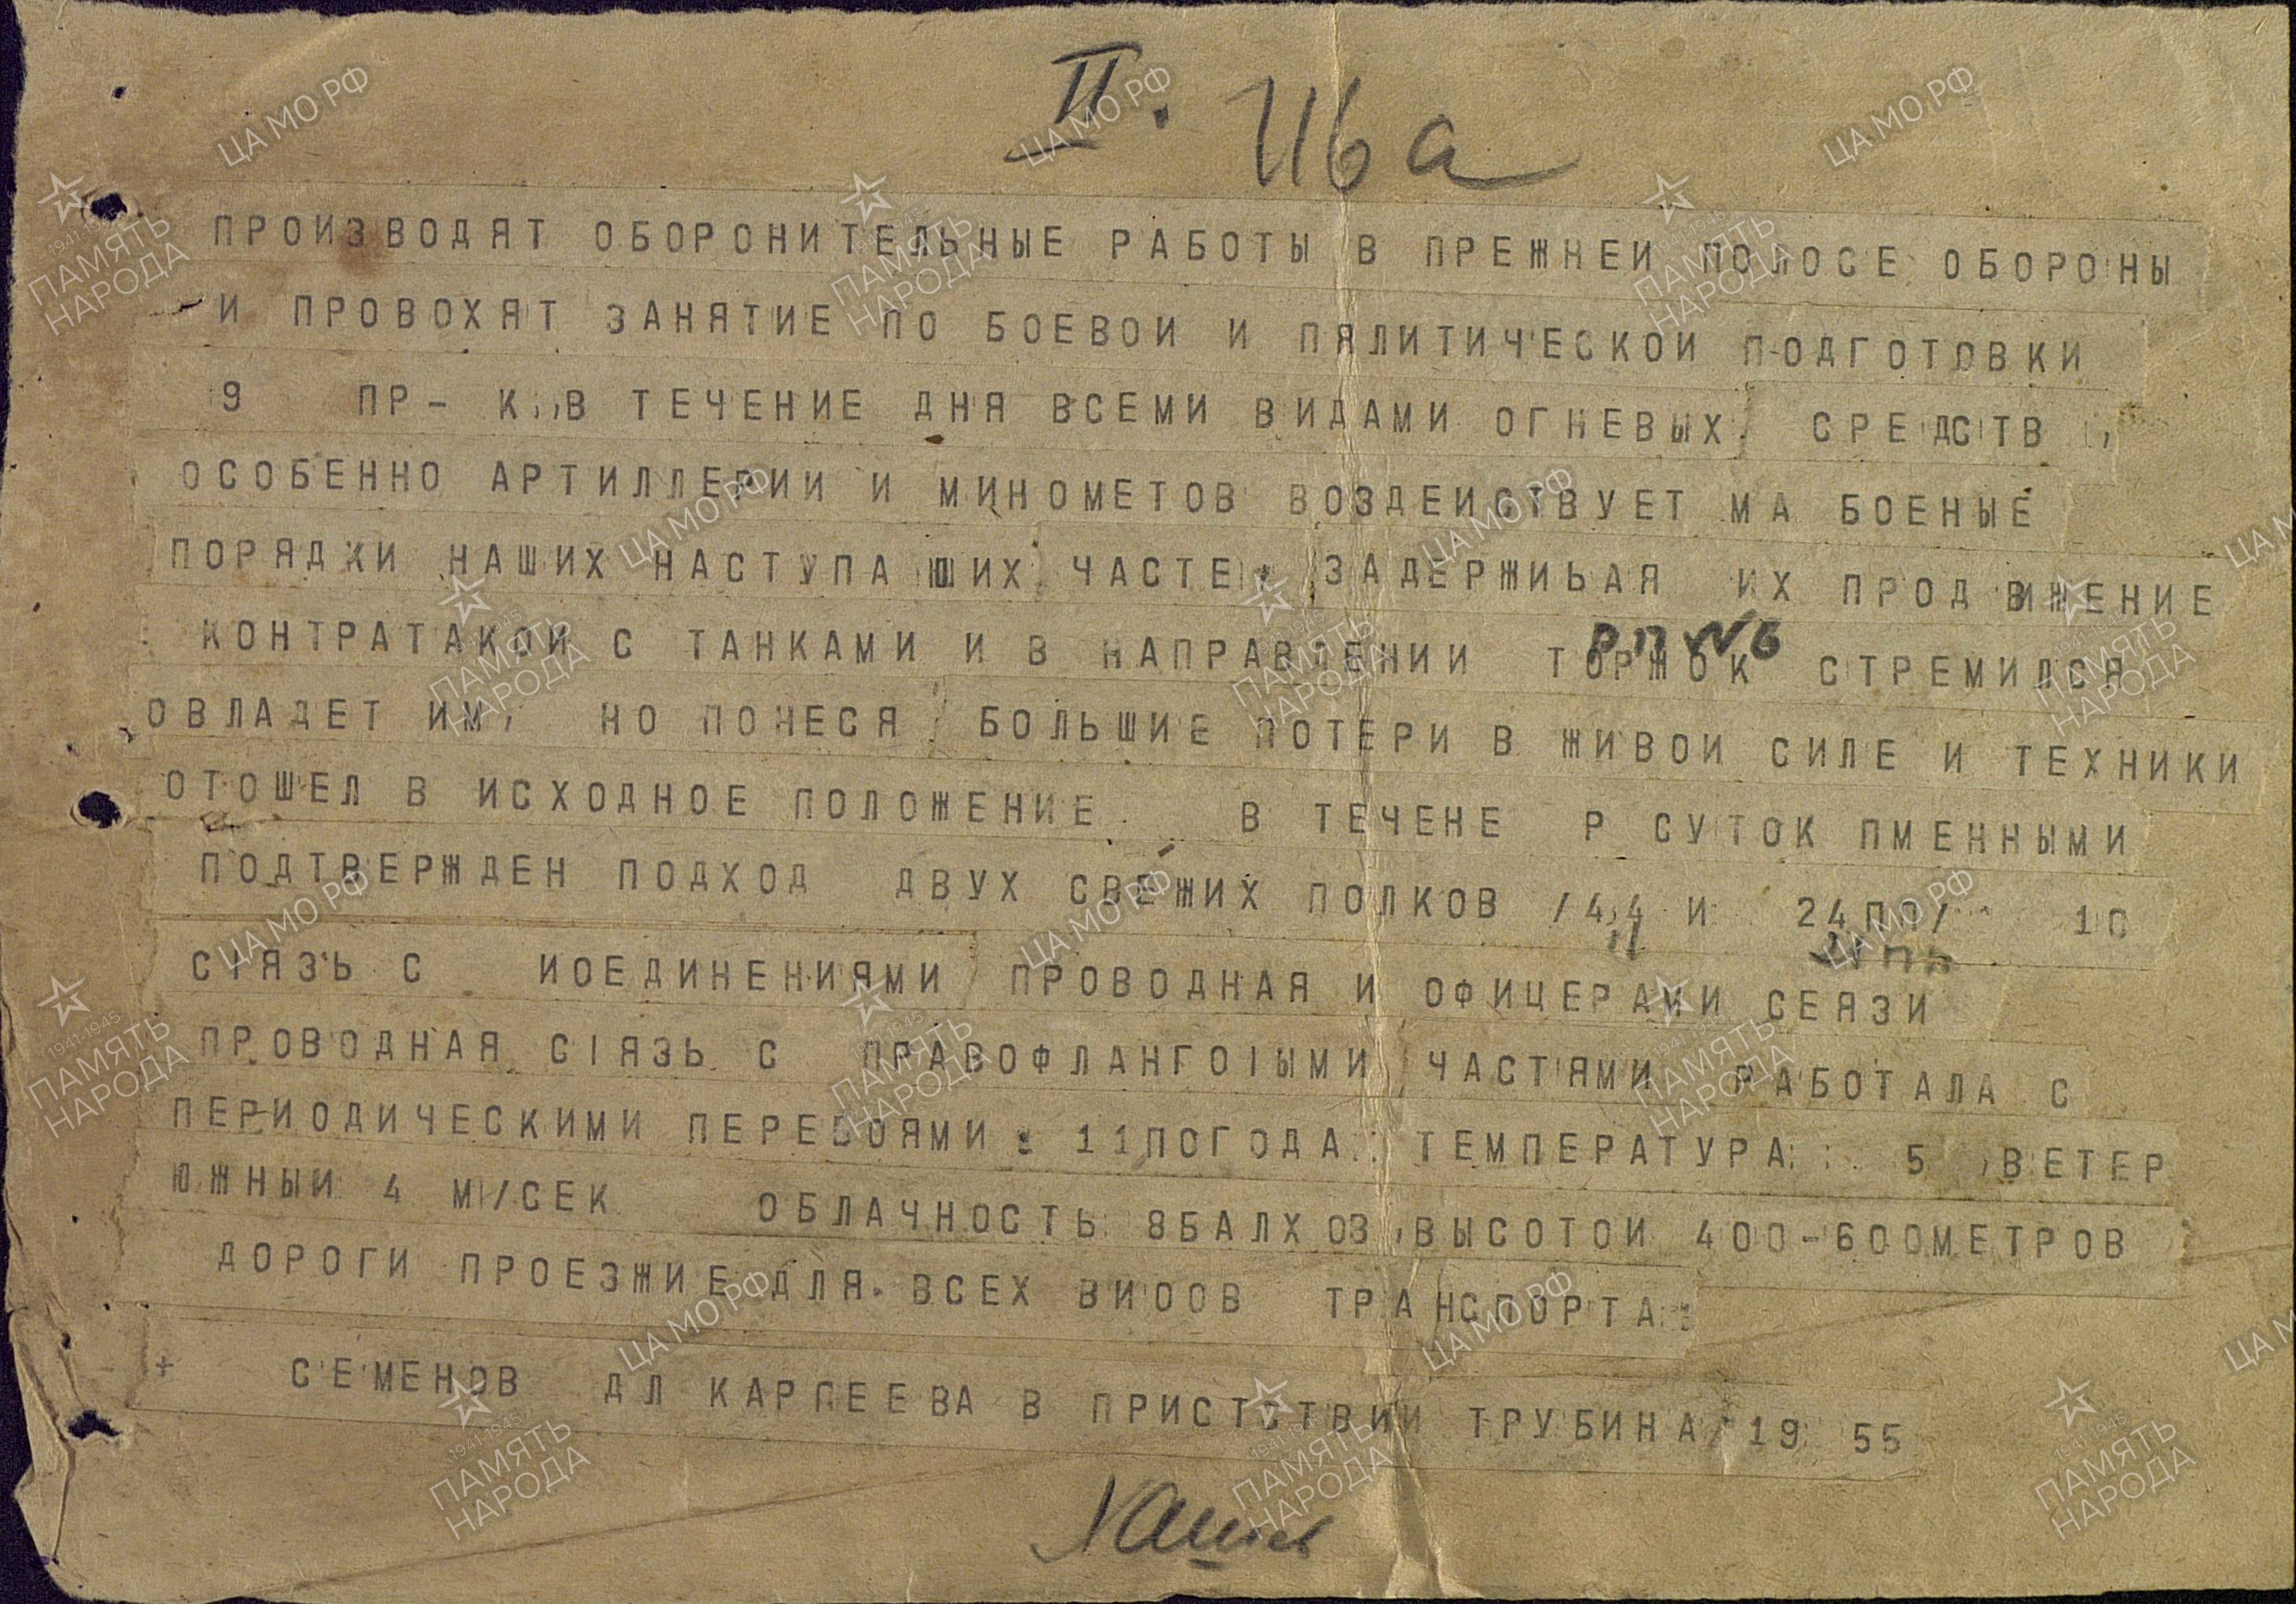 II. 116а
ПРОИЗВОДЯТ ОБОРОНИТЕЛЬНЫЕ РАБОТЫ В ПРЕЖНЕИ ПОЛОСЕ ОБОРОНЫ
И ПРОВОХЯТ ЗАНЯТИЕ ПО БОЕВОИ И ПЯЛИТИЧЕСКОИ ПОДГОТОВКИ
9 ПР- К,,В ТЕЧЕНИЕ ДНЯ ВСЕМИ ВИДАМИ ОГНЕВЫХ СРЕДСТВ ,
ОСОБЕННО АРТИЛЛЕРИИ И МИНОМЕТОВ ВОЗДЕИСТВУЕТ МА БОЕНЫЕ
ПОРЯДКИ НАШИХ НАСТУПА ЮШИХ ЧАСТЕ, ЗАДЕРЖИЬАЯ ИХ ПРОДВИЖЕНИЕ
КОНТРАТАКОИ С ТАНКАМИ И В НАПРАВЛЕНИИ ТОРЖОК СТРЕМИЛСЯ
ОВЛАДЕТ ИМ, НО ПОНЕСЯ БОЛЬШИЕ ПОТЕРИ В ЖИВОИ СИЛЕ И ТЕХНИКИ
ОТОШЕЛ В ИСХОДНОЕ ПОЛОЖЕНИЕ. В ТЕЧЕНЕ Р СУТОК ПМЕННЫМИ
ПОДТВЕРЖДЕН ПОДХОД ДВУХ СВЕЖИХ ПОЛКОВ /44 И 24ПП/ 10
СІЯЗЬ С ИОЕДИНЕНИЯМИ ПРОВОДНАЯ И ОФИЦЕРАМИ СЕЯЗИ
ПРОВОДНАЯ СІЯЗЬ С ПРАВОФЛАНГОІЫМИ ЧАСТЯМИ РАБОТАЛА С
ПЕРИОДИЧЕСКИМИ ПЕРЕБОЯМИ : 11ПОГОДА: ТЕМПЕРАТУРА: 5 ,ВЕТЕР
ЮЖНЫИ 4 М/СЕК ОБЛАЧНОСТЬ 8БАЛХОВ,ВЫСОТОИ 400-600МЕТРОВ
ДОРОГИ ПРОЕЗЖИЕ ДЛЯ ВСЕХ ВИООВ ТРАНСПОРТА:
+ СЕМЕНОВ ДЛ КАРПЕЕВА В ПРИСТСТВИИ ТРУБИНА/19 55